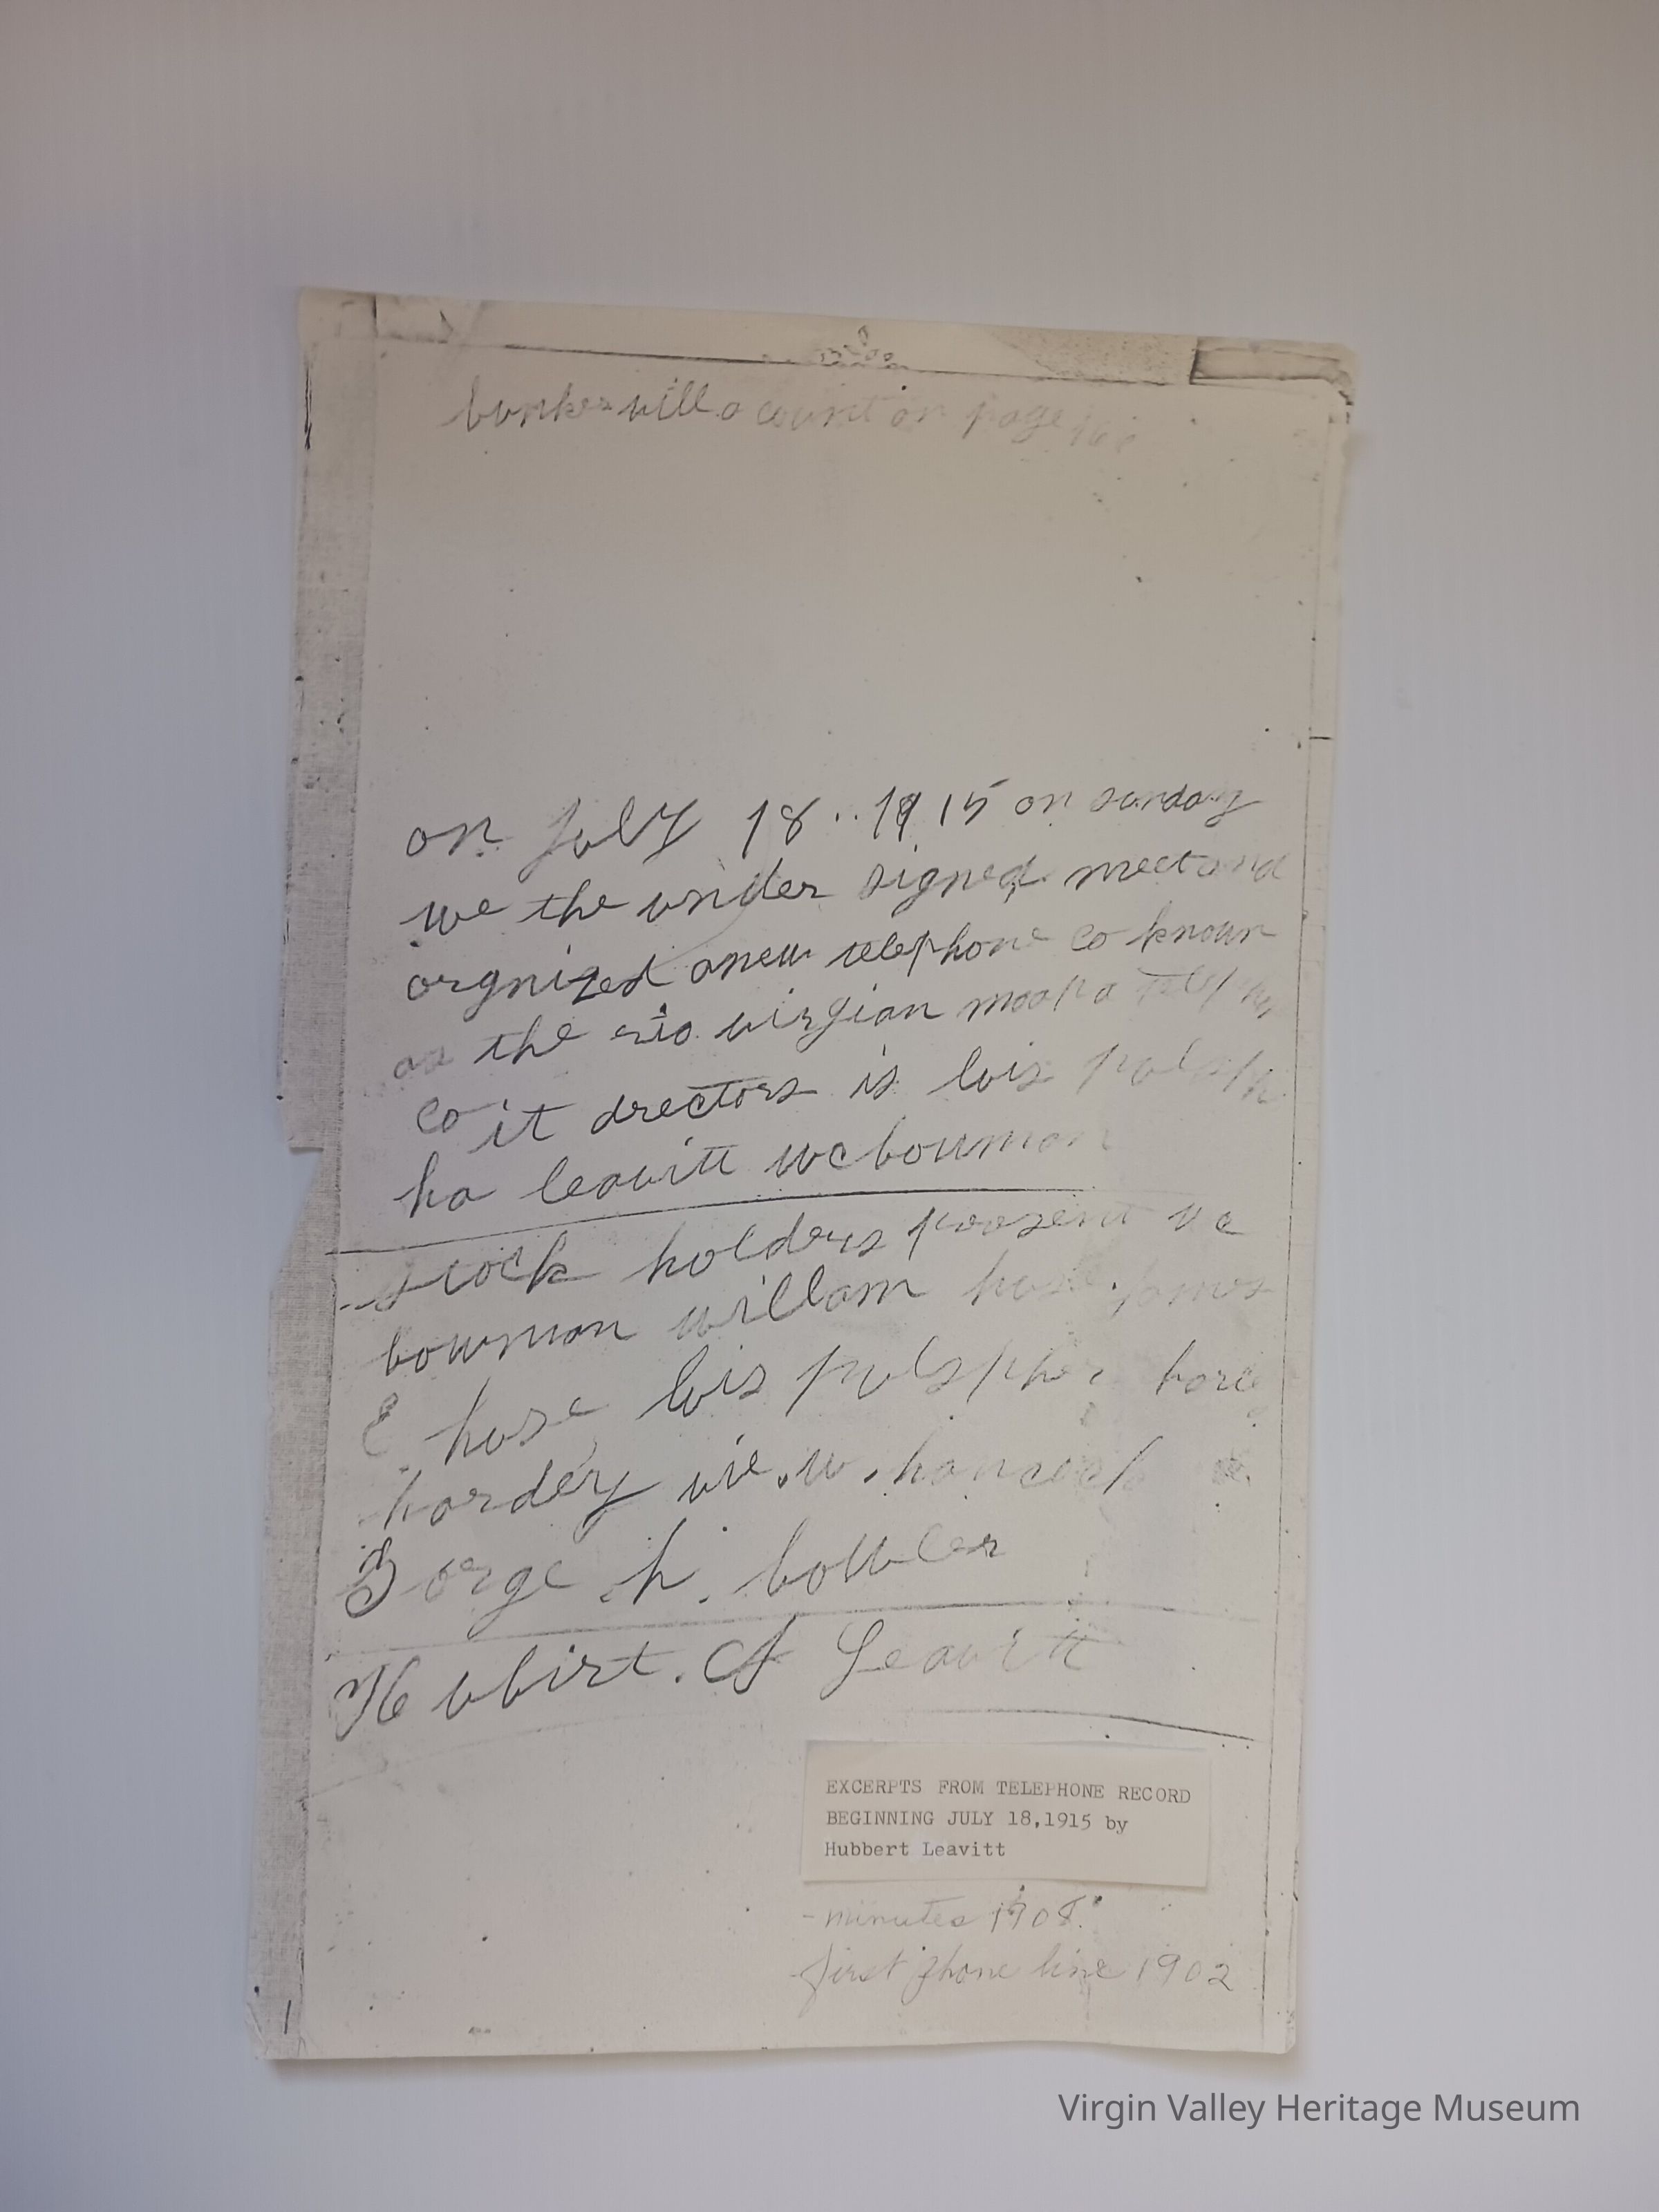 bunkervill a count on page
on july 18..1915 on sunday
we the under signed meet and
orgnized a new telephone co known
as the rio virgian moapa telephon
co it drectors is luis pulsph
ha leavitt wc bowman
stock holders present wc
bowman willam huse james
E huse luis pulspher
hardey wie.w.hancock
Gorge.h.bowler
Hubirt. A Leavitt
EXCERPTS FROM TELEPHONE RECORD
BEGINNING JULY 18,1915 by
Hubbert Leavitt
- minutes 1908.
- first phone line 1902
Virgin Valley Heritage Museum